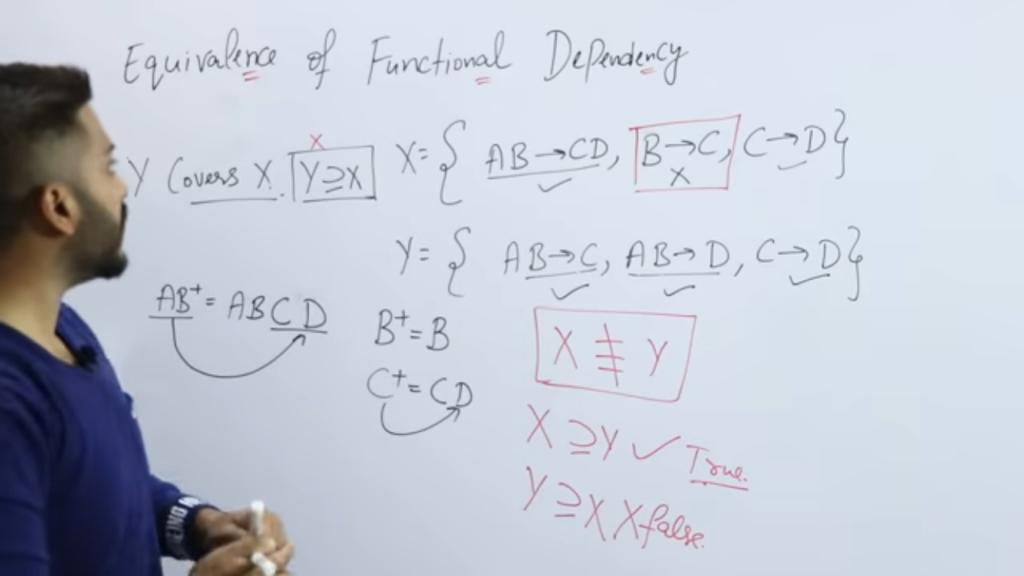 Equivalence of Functional Dependency
Y Covers X. Y⊇X X
X= { AB→CD, B→C, C→D}
X
Y= { AB→C, AB→D, C→D}
AB⁺= ABCD
B⁺= B
C⁺= CD
X ≢ Y
X ⊇Y ✓ True.
Y ⊇X X false.